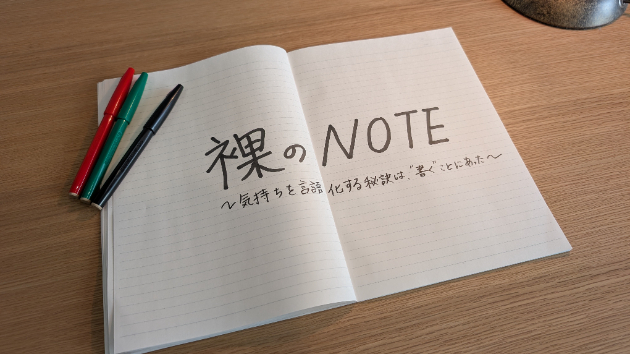 裸のNOTE
～気持ちを言語化する秘訣は、"書く"ことにあった～